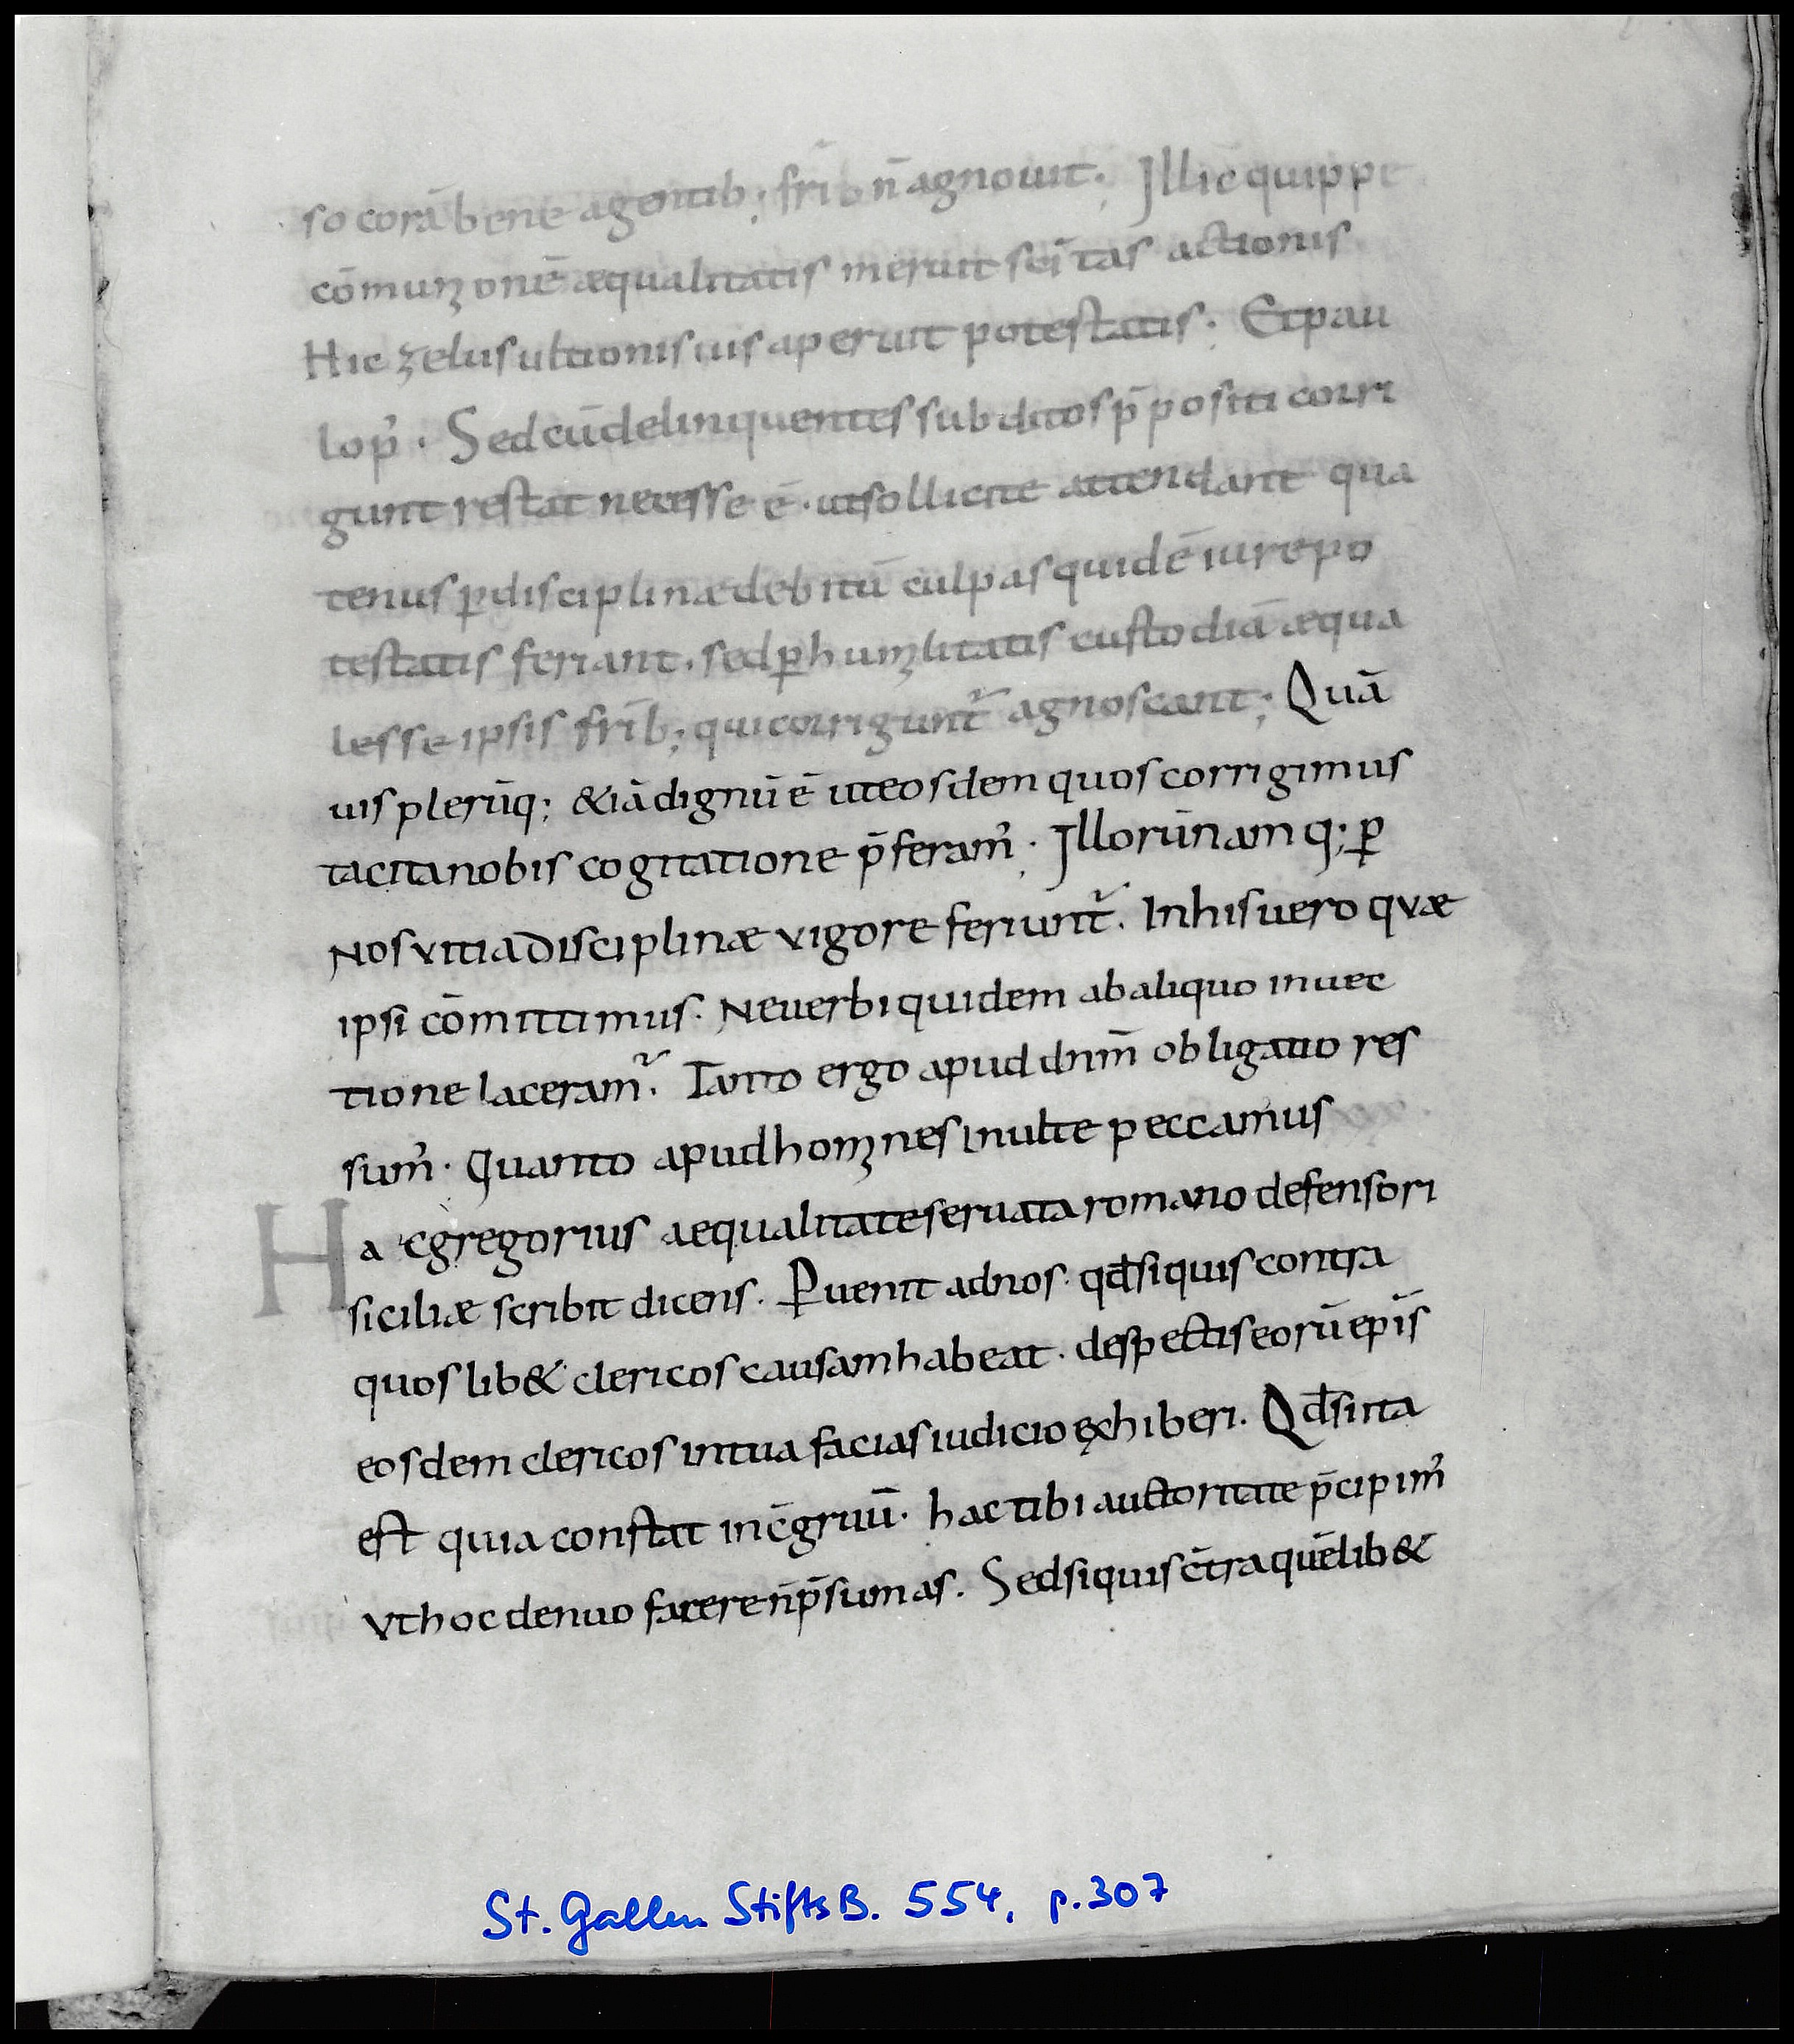 so corā bene agentib; frib; n̄ agnouit. Illic quippe
cōmunionē æqualitatis meruit sci̅tas actionis
Hic zelus ultionis uis aperuit potestatis. Et pau
lo p᾽. Sed cū delinquentes subditos p̄positi corri
gunt restat necesse ē. ut sollicite attendant qua
tenus ꝑ disciplinæ debitū culpas quidē iure po
testatis feriant. sed ꝑ humilitatis custodiā æqua
les se ipsis frīb; qui corriguntᷣ agnoscant; Quā
uis plerūq; &iā dignū ē ut eosdem quos corrigimus
tacita nobis cogitatione p̄feram᾽. Illorū namq; ꝑ
nos vitia disciplinæ vigore feriuntᷣ. In his uero qvæ
ipsi cōmittimus. Ne uerbi quidem ab aliquo inuec
tione laceramᷣ. Tanto ergo apud dnm̄ obligatiores
sum᾽. Quanto apud homines inulte peccamus
Hac gregorius aequalitate seruata romano defensori
siciliæ scribit dicens. Ꝑuenit ad nos. qđ si quis contra
quoslib& clericos causam habeat. despectis eorū epīs
eosdem clericos in tua facias iudicio exhiberi. Qđ si ita
est quia constat inc̄gruū. hac tibi auctoritate p̄cipim᾽
vt hoc denuo facere n̄ p̄sumas. Sed si quis c̄tra quēlib&
St. Gallen StiftsB. 554, p. 307